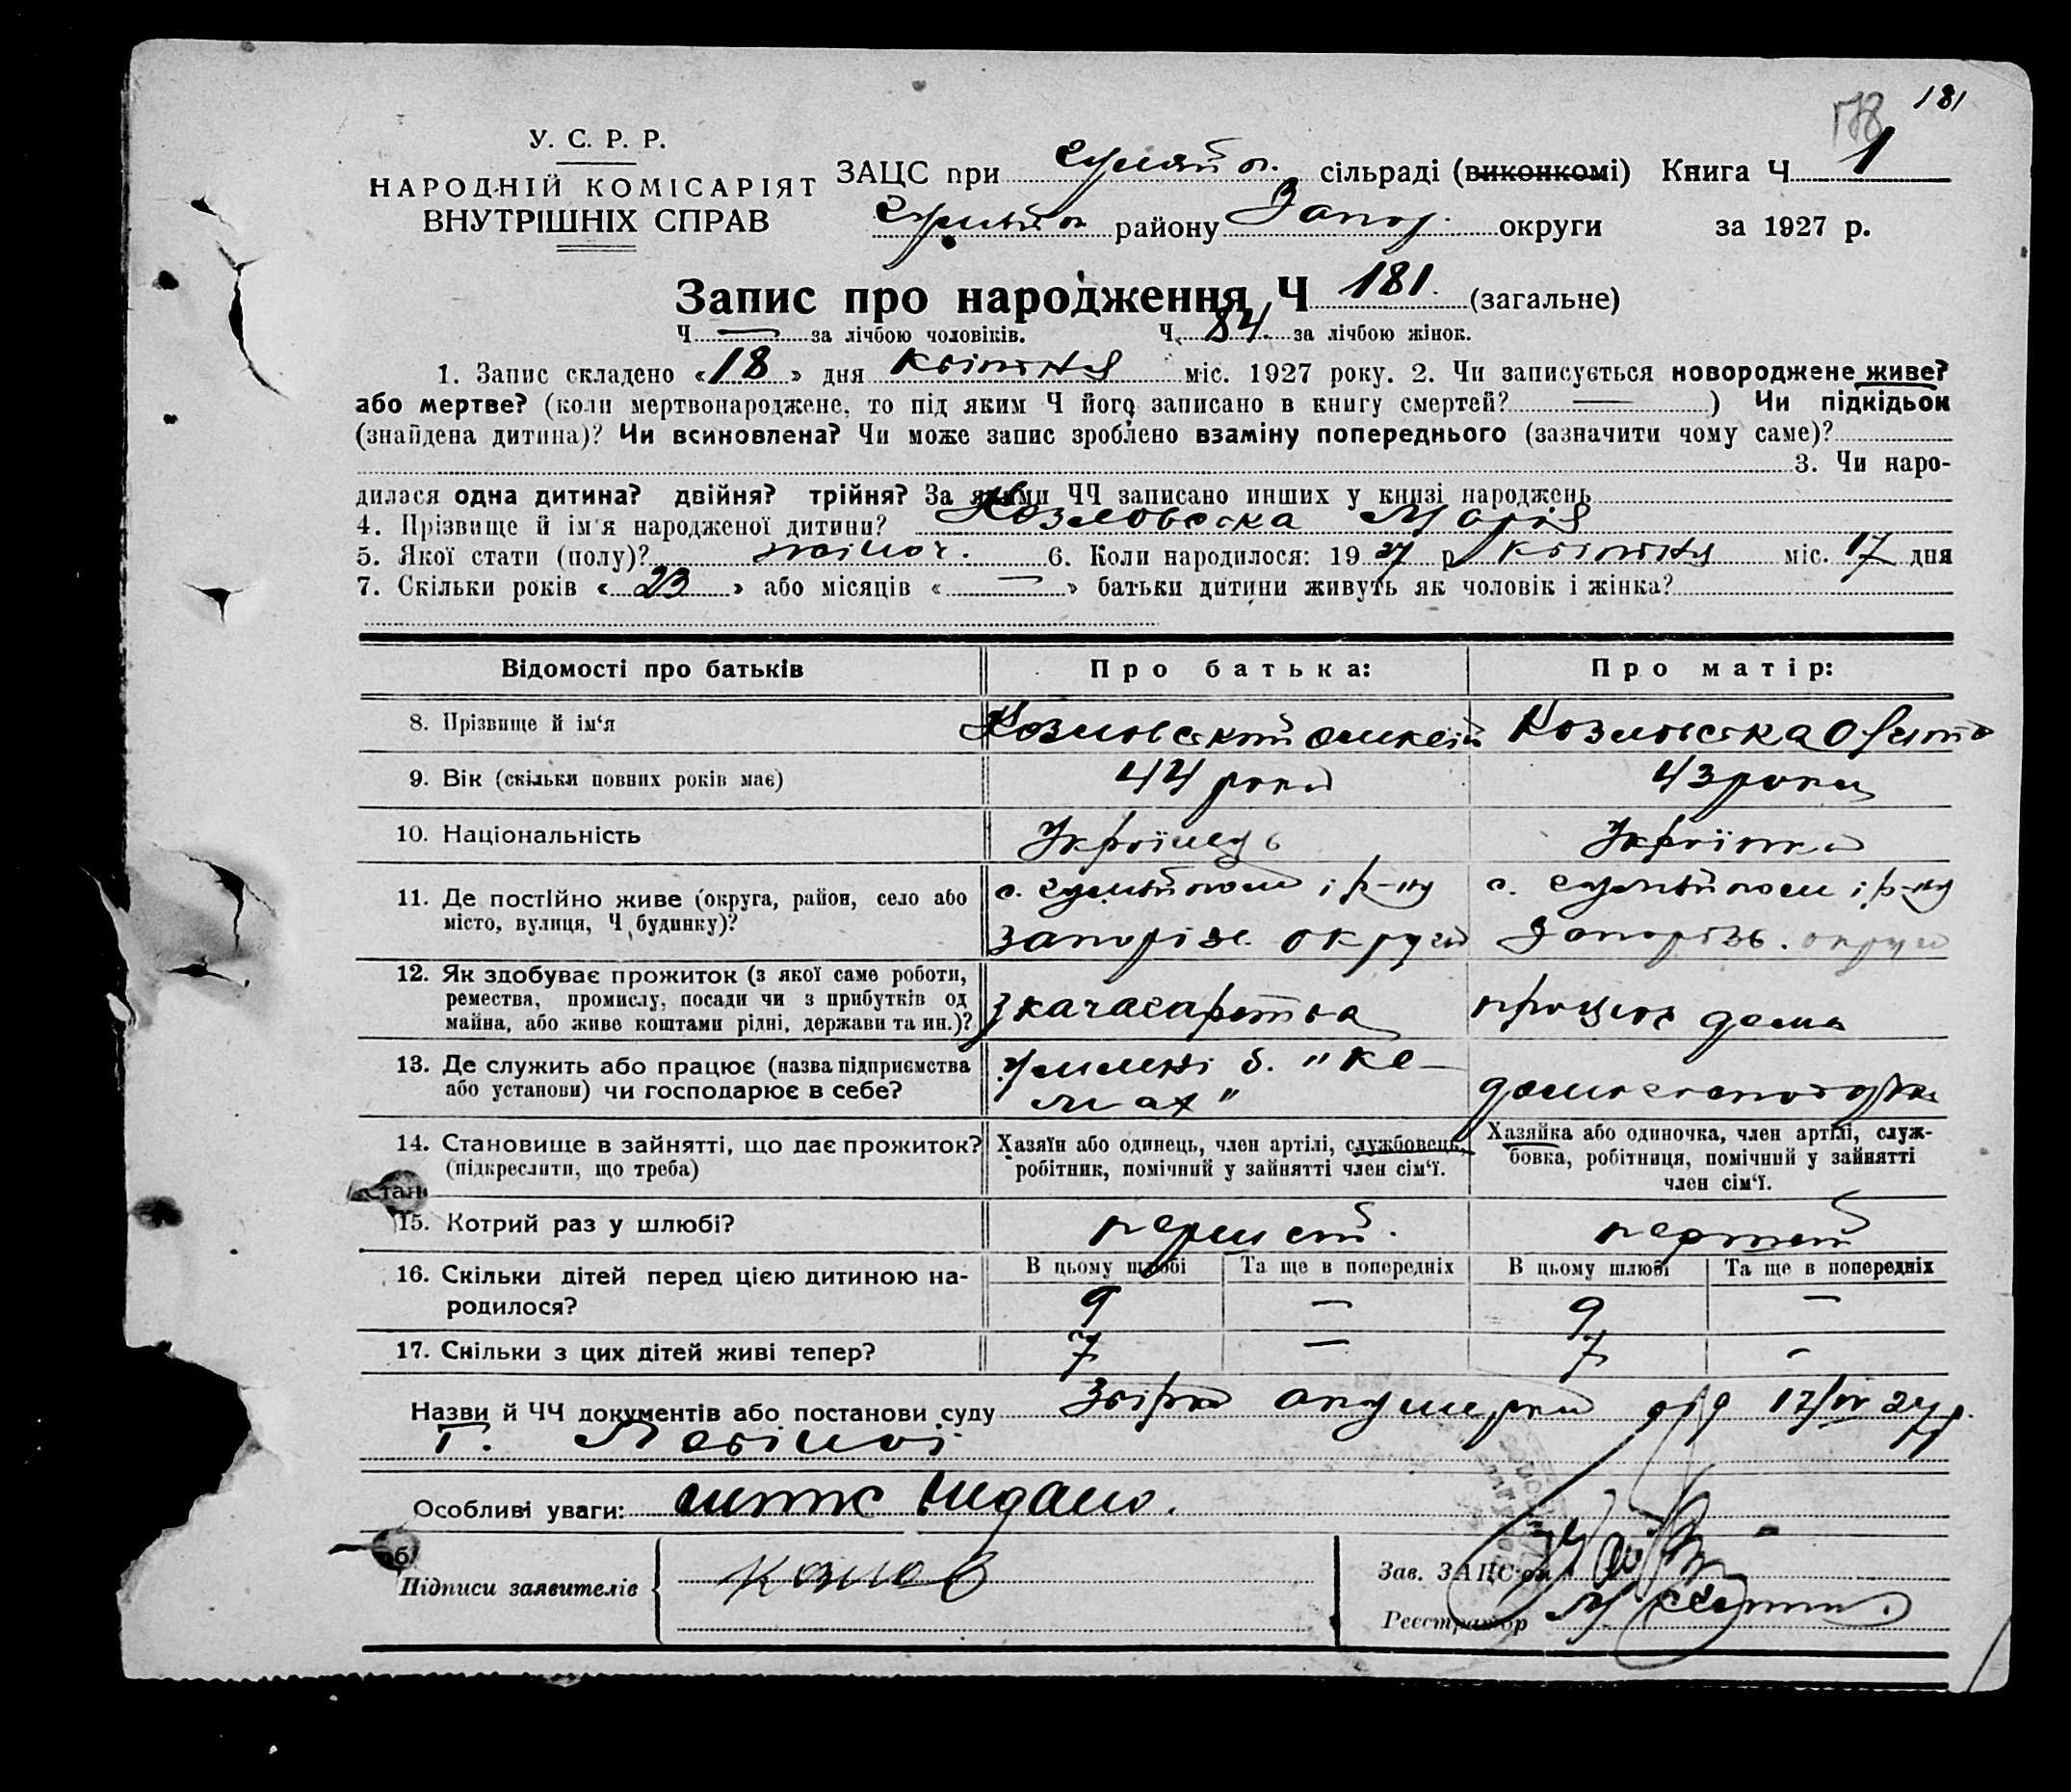 181
178
У. С. Р. Р.
НАРОДНІЙ КОМІСАРІЯТ
ВНУТРІШНІХ СПРАВ
ЗАЦС при Гуляй п. сільраді (виконкомі) Книга Ч 1
Гуляй п району Запор. округи за 1927 р.
Запис про народження Ч 181. (загальне)
Ч — за лічбою чоловіків. Ч. 84. за лічбою жінок.
1. Запис складено «18» дня квітня міс. 1927 року. 2. Чи записується новороджене живе?
або мертве? (коли мертвонароджене, то під яким Ч його записано в книгу смертей? — ) Чи підкідьок
(знайдена дитина)? Чи всиновлена? Чи може запис зроблено взаміну попереднього (зазначити чому саме)?
3. Чи наро-
дилася одна дитина? двійня? трійня? За якими ЧЧ записано инших у книзі народжень
4. Прізвище й ім'я народженої дитини? Козловська Марія
5. Якої стати (полу)? жіноч. 6. Коли народилося: 1927 р квітня міс. 17 дня
7. Скільки років «23» або місяців «—» батьки дитини живуть як чоловік і жінка?
Відомості про батьків Про батька: Про матір:
8. Прізвище й ім‘я Козловський Олексій Козловська
9. Вік (скільки повних років має) 44 роки 43 роки
10. Національність Українець Українка
11. Де постійно живе (округа, район, село або с. Гуляй поле і р-ну с. Гуляй поле і р-ну
місто, вулиця, Ч будинку)? запоріж. округи Запоріж. округи
12. Як здобуває прожиток (з якої саме роботи,
ремества, промислу, посади чи з прибутків од
майна, або живе коштами рідні, держави та ин.)? працює дома
13. Де служить або працює (назва підприємства у млині б. "Ке-
або установи) чи господарює в себе? рмах" домогосподарка
14. Становище в зайнятті, що дає прожиток? Хазяїн або одинець, член артілі, службовець, Хазяйка або одиночка, член артілі, служ-
(підкреслити, що треба) робітник, помічний у зайнятті член сім‘ї. бовка, робітниця, помічний у зайнятті
член сім‘ї.
15. Котрий раз у шлюбі? перший. перший
16. Скільки дітей перед цією дитиною на- В цьому шлюбі Та ще в попередніх В цьому шлюбі Та ще в попередніх
родилося? 9 — 9 —
17. Скільки з цих дітей живі тепер? 7 — 7 -
Назви й ЧЧ документів або постанови суду акушерки від 17/IV 27 р.
Особливі уваги: видано.
Підписи заявителів Козлов
Зав. ЗАЦС'ом
Реєстратор